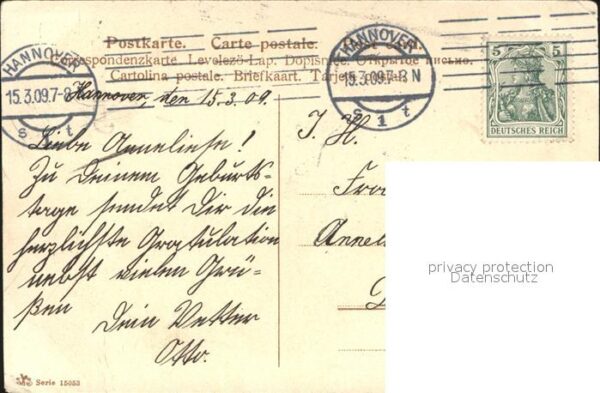 Postkarte. Carte postale.
Correspondenzkarte. Levelező-Lap. Dopisnice. Открытое письмо.
Cartolina postale. Briefkaart.
HANNOVER
15.3.09.7-8
s 1 t
HANNOVER
15.3.09.7-8 N
s 1 t
5 5
DEUTSCHES REICH
Hannover, den 15.3.09.
Liebe Anneliese!
Zu Deinem Geburts-
tage sendet Dir die
herzlichste Gratulation
nebst vielen Grü-
ßen
Dein Vetter
Otto.
I. H.
privacy protection
Datenschutz
Serie 15053